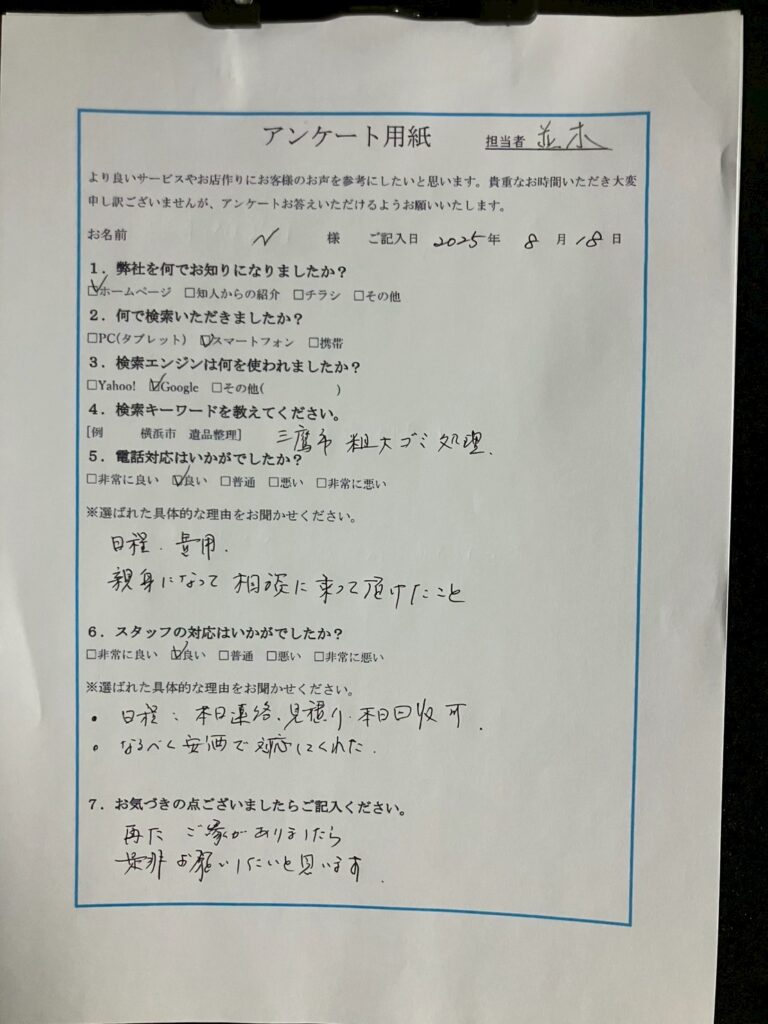 アンケート用紙 担当者 並木
より良いサービスやお店作りにお客様のお声を参考にしたいと思います。貴重なお時間いただき大変
申し訳ございませんが、アンケートお答えいただけるようお願いいたします。
お名前 N 様 ご記入日 2025年 8月18日
1．弊社を何でお知りになりましたか？
☑ホームページ □知人からの紹介 □チラシ □その他
2．何で検索いただきましたか？
□PC(タブレット) ☑スマートフォン □携帯
3．検索エンジンは何を使われましたか？
□Yahoo! ☑Google □その他( )
4．検索キーワードを教えてください。
[例 横浜市 遺品整理] 三鷹市 粗大ゴミ処理.
5．電話対応はいかがでしたか？
□非常に良い ☑良い □普通 □悪い □非常に悪い
※選ばれた具体的な理由をお聞かせください。
日程．費用．
親身になって相談に乗って頂けたこと
6．スタッフの対応はいかがでしたか？
□非常に良い ☑良い □普通 □悪い □非常に悪い
※選ばれた具体的な理由をお聞かせください。
• 日程：本日連絡、見積り、本日回収可．
• なるべく安価で対応してくれた．
7．お気づきの点ございましたらご記入ください。
再たご縁がありましたら
是非お願いしたいと思います．